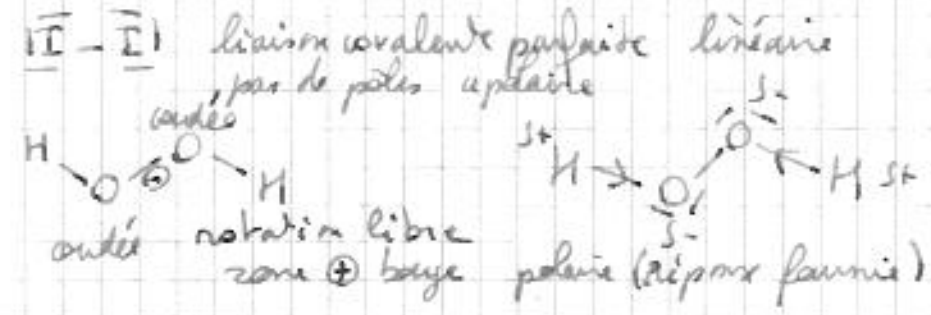 |I - I| liaison covalente parfaite linéaire
pas de pôles apolaire
coudée δ-
H O O H δ+ H O O H δ+
coudée rotation libre δ-
zone ⊕ bouge polaire (réponse fournie)